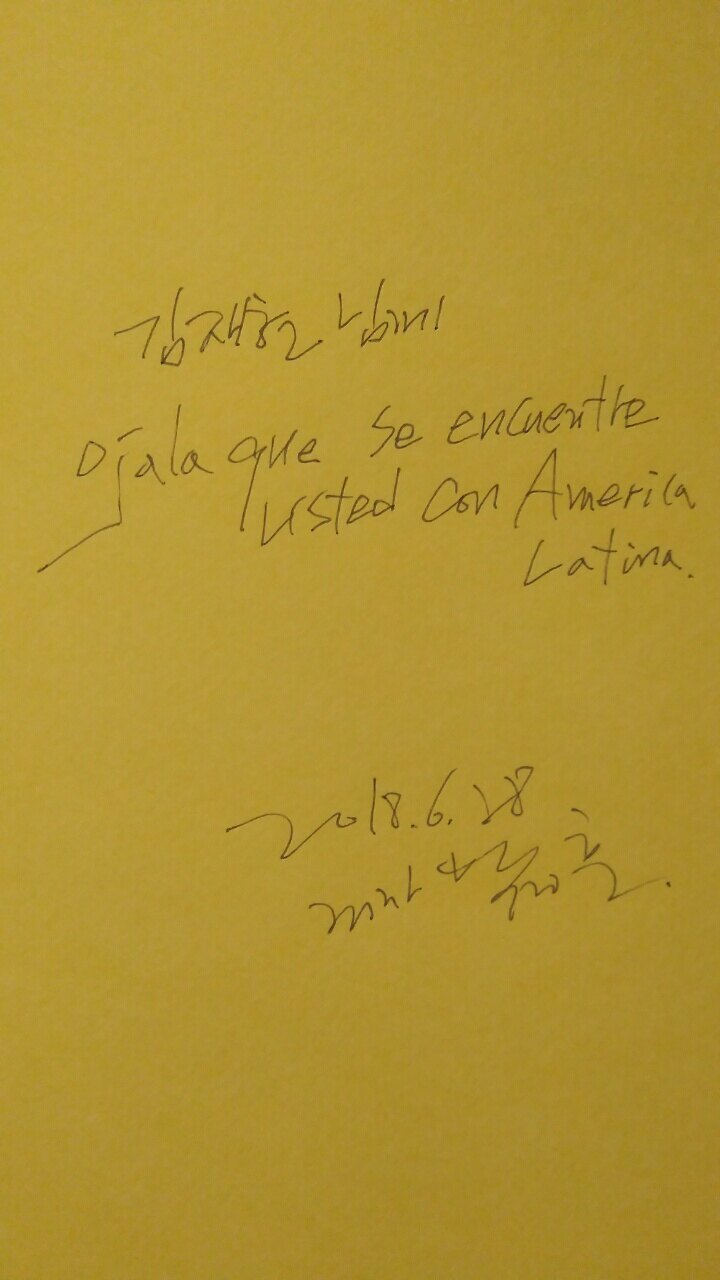 김재현 님께
Ojala que se encuentre
usted con America
Latina.
2018.6.28